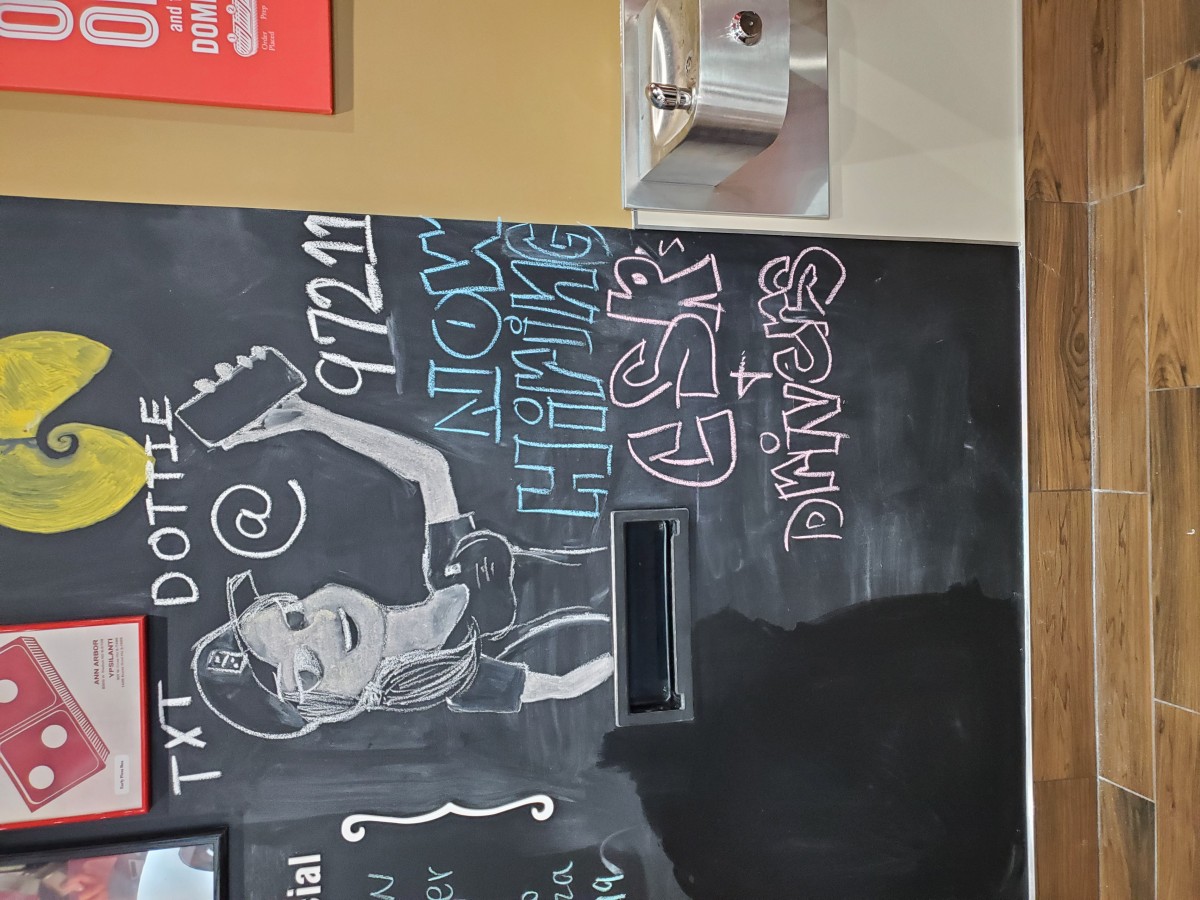 and
Order
Placed
Prep
ANN ARBOR
YPSILANTI
TXT DOTTIE
@ 97211
NOW
Hiring
CSRs
+
Drivers